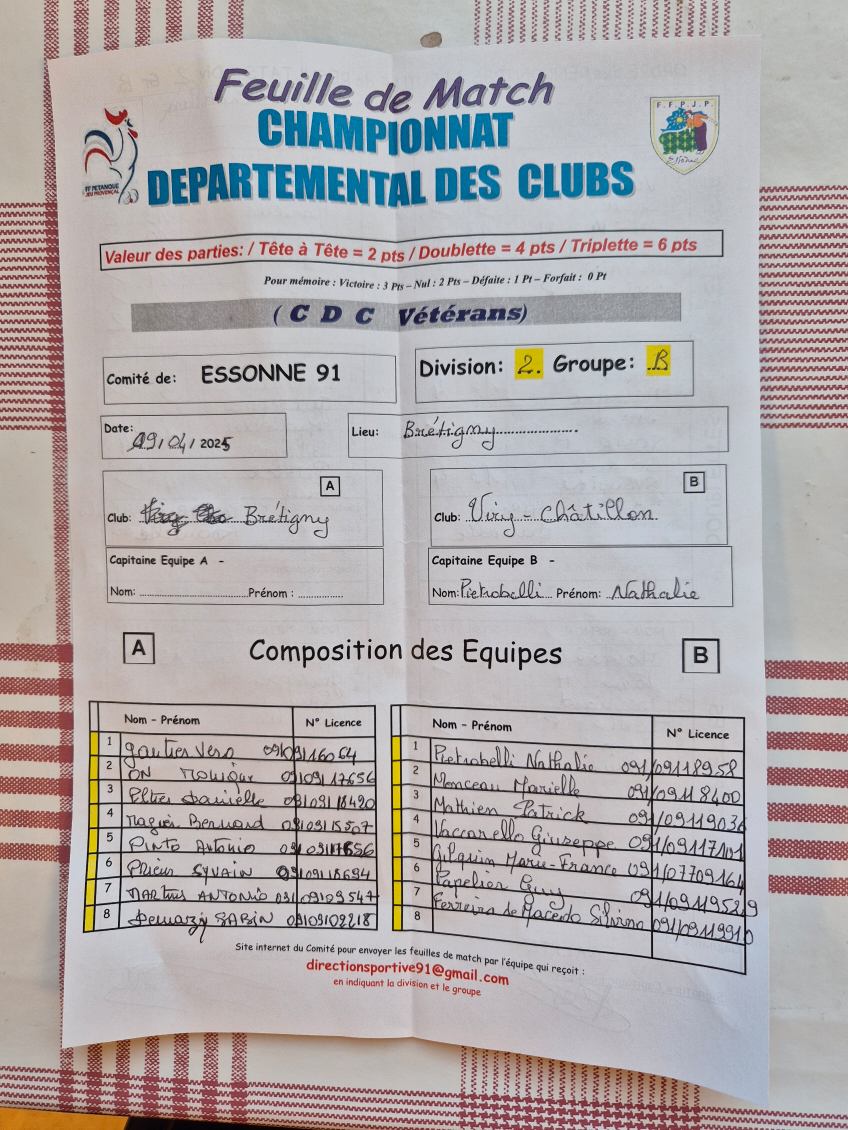 Feuille de Match
CHAMPIONNAT
DEPARTEMENTAL DES CLUBS
FF PETANQUE
JEU PROVENÇAL
F.F.P.J.P.
Valeur des parties: / Tête à Tête = 2 pts / Doublette = 4 pts / Triplette = 6 pts
Pour mémoire : Victoire : 3 Pts – Nul : 2 Pts – Défaite : 1 Pt – Forfait : 0 Pt
( C D C Vétérans)
Comité de: ESSONNE 91
Division: 2. Groupe: B
Date: 09/04/2025
Lieu: Brétigny
A
Club: Brétigny
B
Club: Viry - Châtillon
Capitaine Equipe A -
Nom: Prénom :
Capitaine Equipe B -
Nom: Pietrobelli Prénom: Nathalie
A Composition des Equipes B
Nom - Prénom N° Licence
1 gautier Vero
2 ON Monique 09109117656
3 Danielle 09109118490
4 Bernard 09109115507
5 Pinto Antonio
6 SYLVAIN
7 MARTINS ANTONIO 09109109547
8 Demazy SABIN 09109109218
Nom - Prénom N° Licence
1 Pietrobelli Nathalie 091/09118958
2 Monceau Marielle 091/09118400
3 Mathien Patrick 091/09119036
4 Vaccarello Giuseppe 091/09117101
5 Gilquin Marie-France 091/07709164
6 Papelier Guy 091/09119529
7 Ferreira de Macedo Silvino 091/09119910
8
Site internet du Comité pour envoyer les feuilles de match par l'équipe qui reçoit :
directionsportive91@gmail.com
en indiquant la division et le groupe